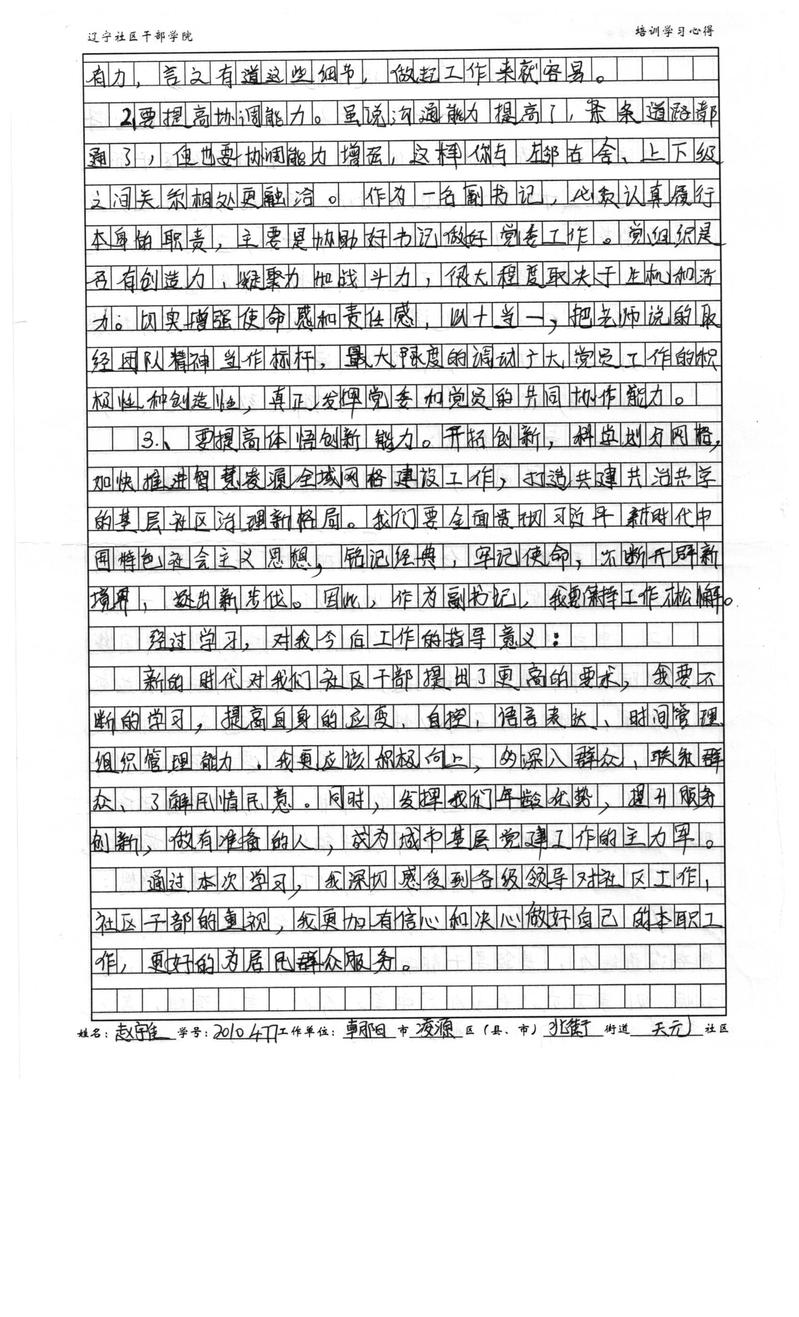 辽宁社区干部学院 培训学习心得
有力，言之有道这些细节，做起工作来就容易。
2、要提高协调能力。虽说沟通能力提高了，条条道路都
通了，但也要协调能力增强，这样你与左邻右舍、上下级
之间关系相处更融洽。作为一名副书记，必须认真履行
本身的职责，主要是协助好书记做好党委工作。党组织是
否有创造力，凝聚力和战斗力，很大程度取决于生机和活
力。切实增强使命感和责任感，以十当一，把老师说的取
经团队精神当作标杆，最大限度的调动广大党员工作的积
极性和创造性，真正发挥党委和党员的共同协作能力。
3、要提高体悟创新能力。开拓创新，科学划分网格，
加快推进智慧凌源全域网格建设工作，打造共建共治共享
的基层社区治理新格局。我们要全面贯彻习近平新时代中
国特色社会主义思想，铭记经典，牢记使命，不断开辟新
境界，迈出新步伐。因此，作为副书记，我要保持工作不松懈。
经过学习，对我今后工作的指导意义：
新的时代对我们社区干部提出了更高的要求，我要不
断的学习，提高自身的应变、自控，语言表达、时间管理
组织管理能力．我更应该积极向上，的深入群众、联系群
众、了解民情民意。同时，发挥我们年龄优势，提升服务
创新，做有准备的人，成为城市基层党建工作的主力军。
通过本次学习，我深切感受到各级领导对社区工作，
社区干部的重视，我更加有信心和决心做好自己的本职工
作，更好的为居民群众服务。
姓名：赵宇 学号：2010477 工作单位：朝阳 市 凌源 区（县、市）北街 街道 天元 社区